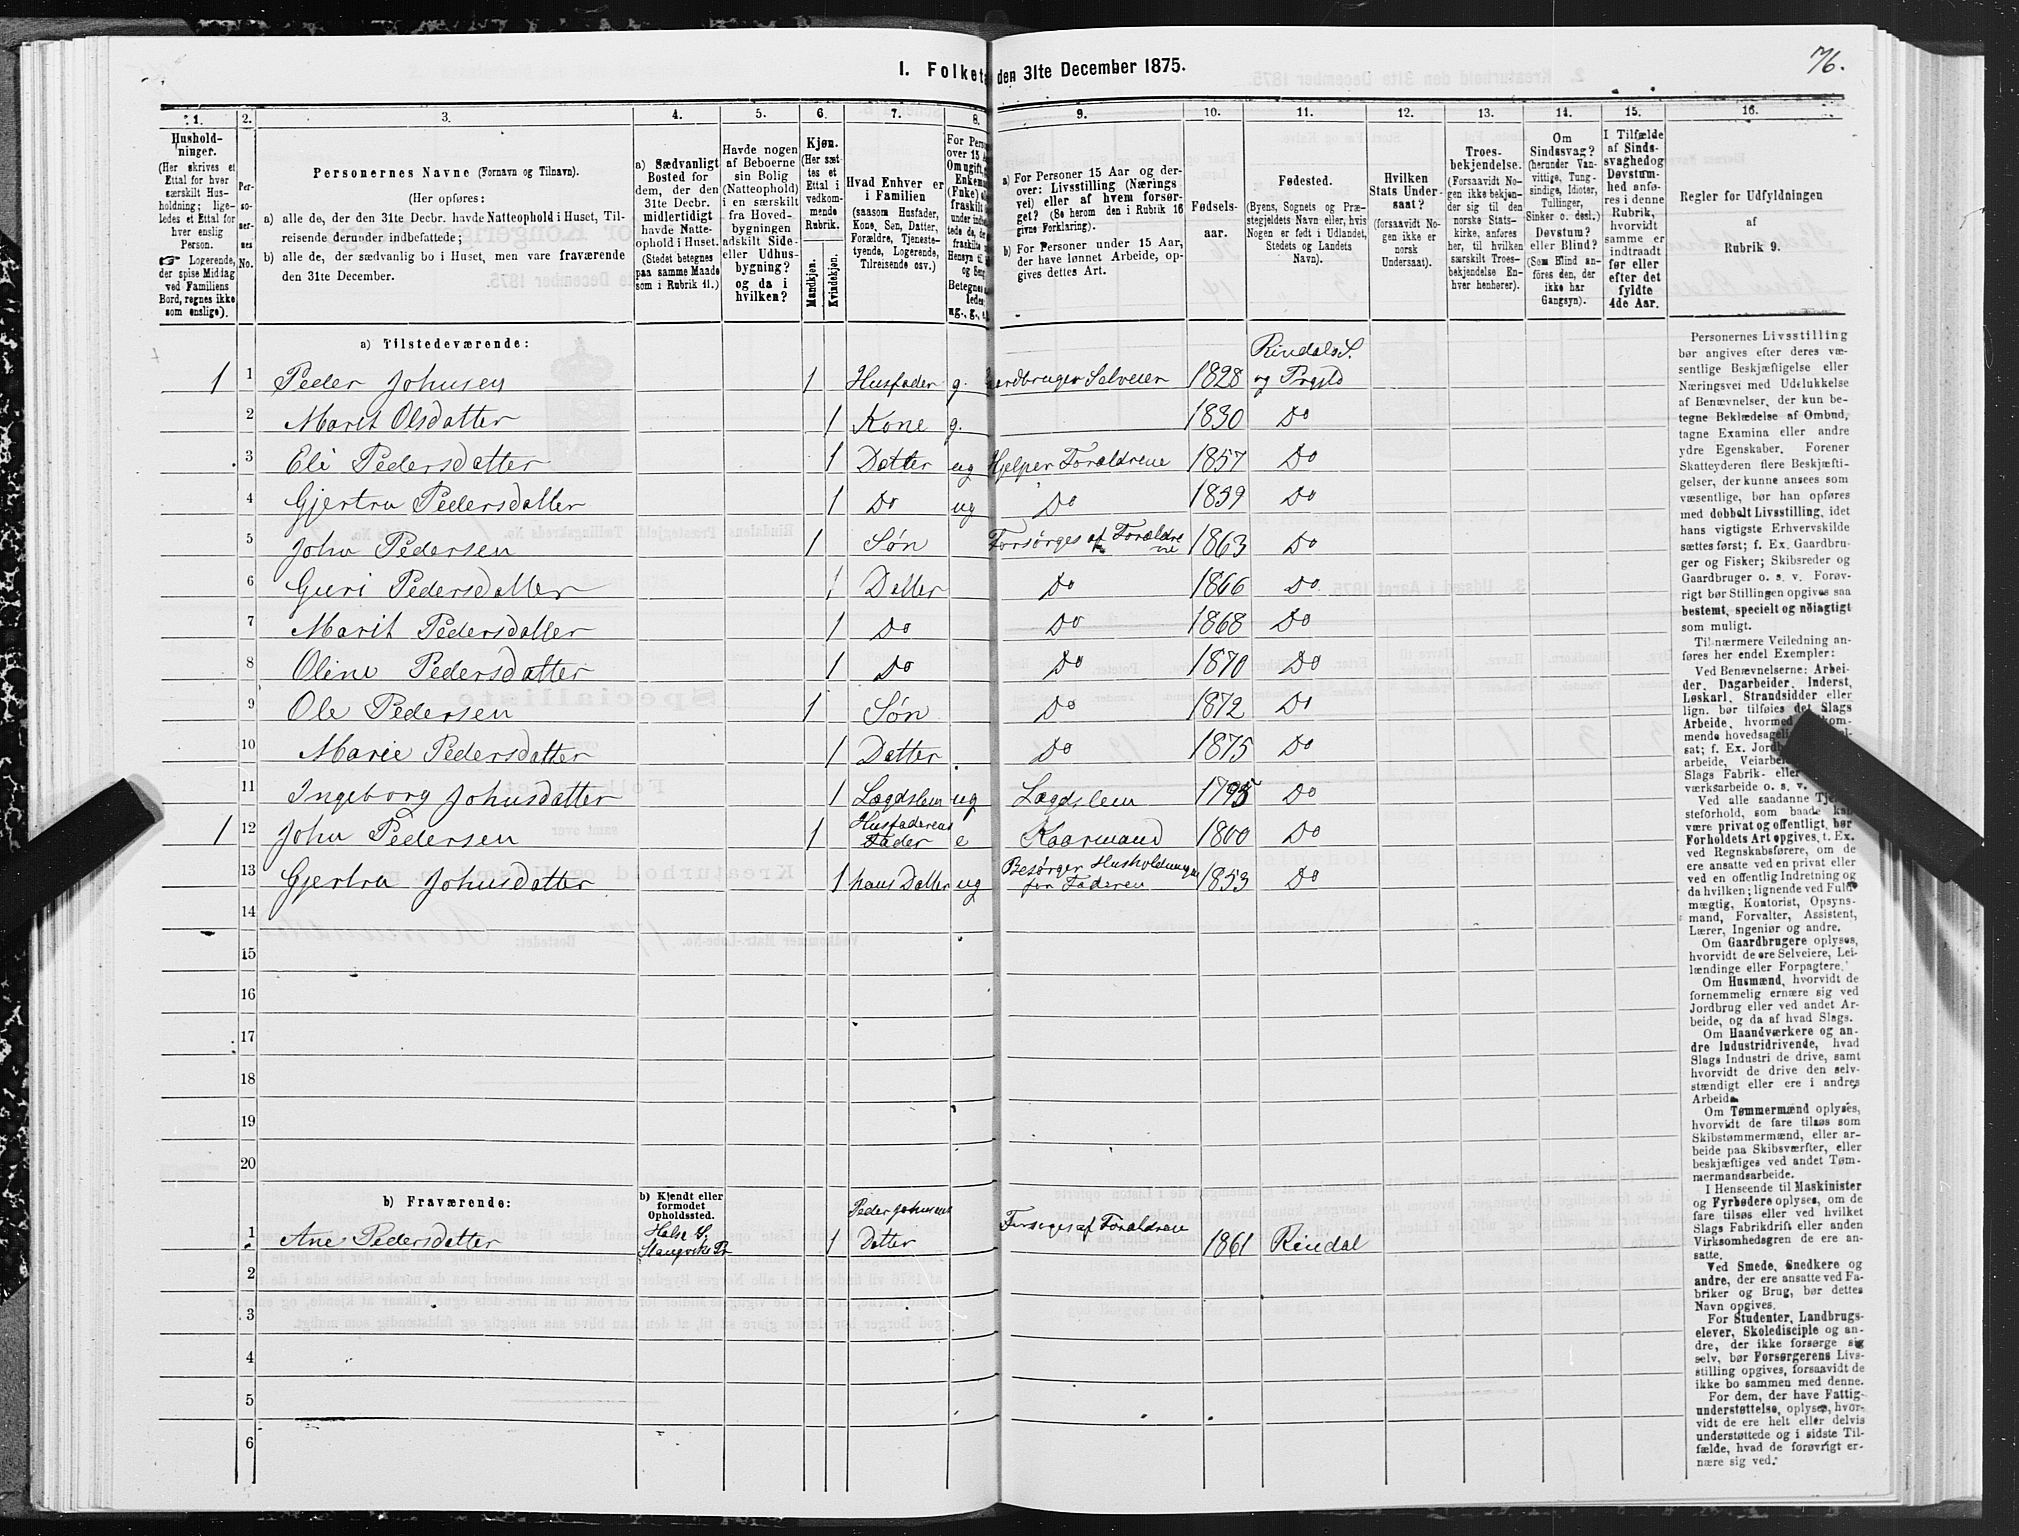 76.
I. Folketæ den 31te December 1875.
1. 2. 3. 4. 5. 6. 7. 8. 9. 10. 11. 12. 13. 14. 15. 16.
Hushold-
ninger.
(Her skrives et
Ettal for hver
særskilt Hus-
holdning; lige-
ledes et Ettal for
hver enslig
Person.
☞ Logerende,
der spise Middag
ved Familiens
Bord, regnes ikke
som enslige).
Per-
so-
ner-
nes
No.
Personernes Navne (Fornavn og Tilnavn).
(Her opføres:
a) alle de, der den 31te Decbr. havde Natteophold i Huset, Til-
reisende derunder indbefattede;
b) alle de, der sædvanlig bo i Huset, men vare fraværende
den 31te December.
a) Sædvanligt
Bosted for
dem, der den
31te Decbr.
midlertidigt
havde Natte-
ophold i Huset.
(Stedet betegnes
paa samme Maade
som i Rubrik 11.)
Havde nogen
af Beboerne
sin Bolig
(Natteophold)
i en særskilt
fra Hoved-
bygningen
adskilt Side-
eller Udhus-
bygning?
og da i
hvilken?
Kjøn.
(Her sæt-
tes et
Ettal i
vedkom-
mende
Rubrik.
Mandkjøn.
Kvindekjøn.
Hvad Enhver er
i Familien
(saasom Husfader,
Kone, Søn, Datter,
Forældre, Tjeneste-
tyende, Logerende,
Tilreisende osv.)
For Perso
over 15 A
Om ugift,
Enkem
(Fnke) e
fraskilt
a) For Personer 15 Aar og der-
over: Livsstilling (Nærings
vei) eller af hvem forsør-
get? (Se herom den i Rubrik 16
givne Forklaring).
b) For Personer under 15 Aar,
der have lønnet Arbeide, op-
gives dettes Art.
Fødsels-
aar.
Fødested.
(Byens, Sognets og Præ-
stegjeldets Navn eller, hvis
Nogen er født i Udlandet,
Stedets og Landets
Navn).
Hvilken
Stats Under-
saat?
(forsaavidt No-
gen ikke er
norsk
Undersaat).
Troes-
bekjendelse.
(Forsaavidt No-
gen ikke bekjen-
der sig til den
norske Stats-
kirke, anføres
her, til hvilken
særskilt Troes-
bekjendelse En-
hver henhører).
Om
Sindssvag?
(herunder Van-
vittige, Tung-
sindige, Idioter,
Tullinger,
Sinker o. desl.)
Døvstum?
eller Blind?
(Som Blind an-
føres den, der
ikke har
Gangsyn).
I Tilfælde
af Sinds-
svaghed og
Døvstum-
hed anfø-
res i denne
Rubrik,
hvorvidt
samme er
indtraadt
før eller
efter det
fyldte
4de Aar.
Regler for Udfyldningen
af
Rubrik 9.
a) Tilstedeværende:
1 1 Peder Johnsen 1 Husfader g. Gaardbruger Selveier 1828 Rindals S. og Prgjld
2 Marit Olsdatter 1 Kone g. 1830 Do
3 Eli Pedersdatter 1 Datter ug Hjelper Forældrene 1857 Do
4 Gjertru Pedersdatter 1 Do ug Do 1859 Do
5 John Pedersen 1 Søn Forsørges af Forældrene 1863 Do
6 Guri Pedersdatter 1 Datter Do 1866 Do
7 Marit Pedersdatter 1 Do Do 1868 Do
8 Oline Pedersdatter 1 Do Do 1870 Do
9 Ole Pedersen 1 Søn Do 1872 Do
10 Marie Pedersdatter 1 Datter Do 1875 Do
11 Ingeborg Johnsdatter 1 Lægdslem ug Lægdslem 1795 Do
1 12 John Pedersen 1 Husfaderens Fader e Kaarmand 1800 Do
13 Gjertru Johnsdatter 1 hans Datter ug Besørger Husholdningen for Faderen 1853 Do
14
15
16
17
18
19
20
b) Fraværende:
b) Kjendt eller
formodet
Opholdssted.
1 Ane Pedersdatter Halse S. Stangviks Pr 1 Peder Johnsens Datter Forsørges af Forældrene 1861 Rindal
2
3
4
5
6
Personernes Livsstilling
bør angives efter deres væ-
sentlige Beskjæftigelse eller
Næringsvei med Udelukkelse
af Benævnelser, der kun be-
tegne Beklædelse af Ombud,
tagne Examina eller andre
ydre Egenskaber. Forener
Skatteyderen flere Beskjæfti-
gelser, der kunne ansees som
væsentlige, bør han opføres
med dobbelt Livsstilling, idet
hans vigtigste Erhvervskilde
sættes først; f. Ex. Gaardbru-
ger og Fisker; Skibsreder og
Gaardbruger o. s. v. Forøv-
rigt bør Stillingen opgives saa
bestemt, specielt og nøiagtigt
som muligt.
Til nærmere Veiledning an-
føres her endel Exempler:
Ved Benævnelserne: Arbei-
der, Dagarbeider, Inderst,
Løskarl, Strandsidder eller
lign. bør tilføies det Slags
Arbeide, hvormed
mende hovedsagelig
sat; f. Ex. Jordb
arbeide, Veiarbei
Slags Fabrik- eller
værksarbeide o. s. v.
Ved alle saadanne Tje
steforhold, som baade kan
være privat og offentligt, bør
Forholdets Art opgives, t. Ex.
ved Regnskabsførere, om de
ere ansatte ved en privat eller
ved en offentlig Indretning og
da hvilken; lignende ved Fuld-
mægtig, Kontorist, Opsyns-
mand, Forvalter, Assistent,
Lærer, Ingeniør og andre.
Om Gaardbrugere oplyses,
hvorvidt de ere Selveiere, Lei-
lændinge eller Forpagtere.
Om Husmænd, hvorvidt de
fornemmelig ernære sig ved
Jordbrug eller ved andet Ar-
beide, og da af hvad Slags.
Om Haandværkere og an-
dre Industridrivende, hvad
Slags Industri de drive, samt
hvorvidt de drive den selv-
stændigt eller ere i andres
Arbeide.
Om Tømmermænd oplyses,
hvorvidt de fare tilsøs som
Skibstømmermænd, eller ar-
beide paa Skibsværfter, eller
beskjæftiges ved andet Tøm-
mermandsarbeide.
I Henseende til Maskinister
og Fyrbødere oplyses, om de
fare tilsøs eller ved hvilket
Slags Fabrikdrift eller anden
Virksomhedsgren de ere an-
satte.
Ved Smede, Snedkere og
andre, der ere ansatte ved Fa-
briker og Brug, bør dettes
Navn opgives.
For Studenter, Landbrugs-
elever, Skoledisciple og an-
dre, der ikke forsørge sig
selv, bør Forsørgerens Livs-
stilling opgives, forsaavidt de
ikke bo sammen med denne.
For dem, der have Fattig-
understøttelse, oplyses, hvor-
vidt de ere helt eller delvis
understøttede og i sidste Til-
fælde, hvad de forøvrigt er-
nære sig ved.